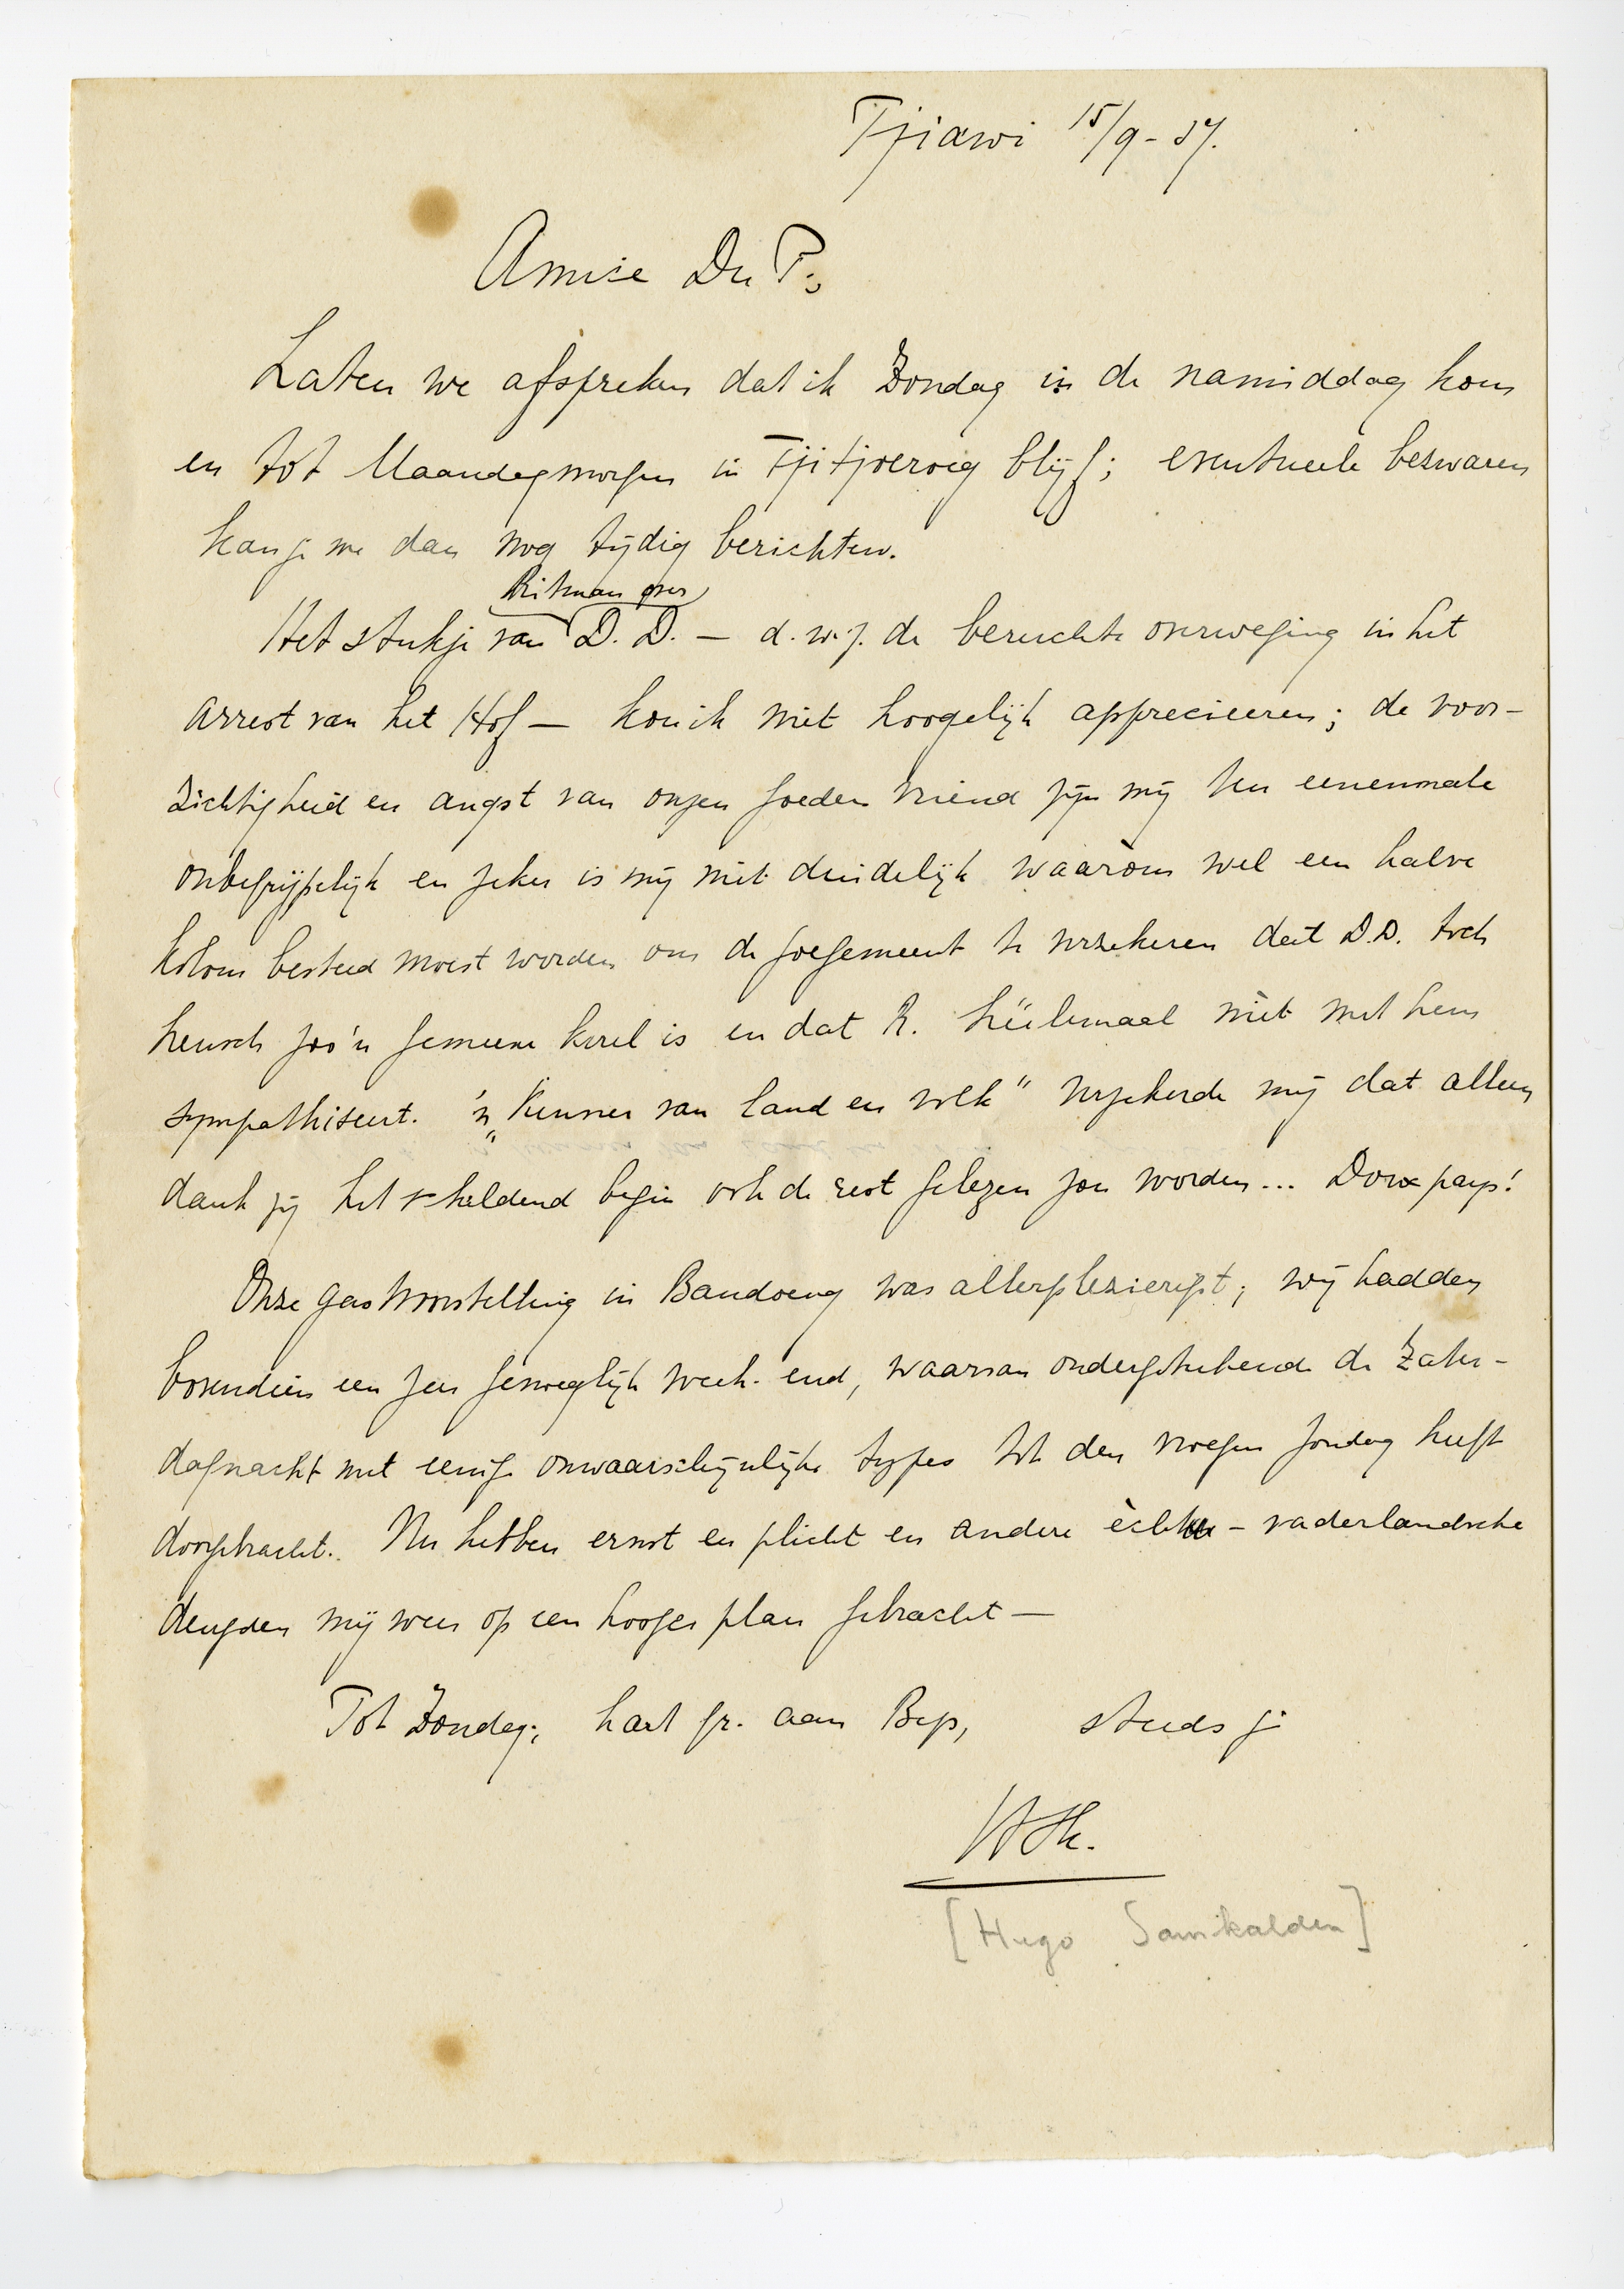 Tjiawi 15/9-37.
Amice Du P.,
Laten we afspreken dat ik Zondag in de namiddag kom
en tot Maandagmorgen in Tjitjoeroeg blijf; eventueele bezwaren
kan je me dan nog tijdig berichten.
Ritman over
Het stukje van D.D. — d.w.z. de beruchte overweging in het
arrest van het Hof — kon ik niet hoogelijk apprecieeren; de voor-
zichtigheid en angst van onzen goeden vriend zijn mij ten eenenmale
onbegrijpelijk en zeker is mij niet duidelijk waaròm wel een halve
kolom besteed moest worden om de goegemeent te verzekeren dat D.D. toch
heusch zoo'n gemeene kerel is en dat R. héélemaal niet met hem
sympathiseert. 'n „Kenner van land en volk" verzekerde mij dat alleen
dank zij het scheldend begin ook de rest gelezen zou worden... Doux pays!
Onze gastvoorstelling in Bandoeng was allerplezierigst; wij hadden
bovendien een zeer genoeglijk week-end, waarvan ondergeteekende de Zater-
dagnacht met eenige onwaarschijnlijke types tot den vroegen Zondag heeft
doorgebracht. Nu hebben ernst en plicht en andere ècht-vaderlandsche
deugden mij weer op een hooger plan gebracht —
Tot Zondag; hart. gr. aan Bep, steeds je
HSk.
[Hugo Samkalden]